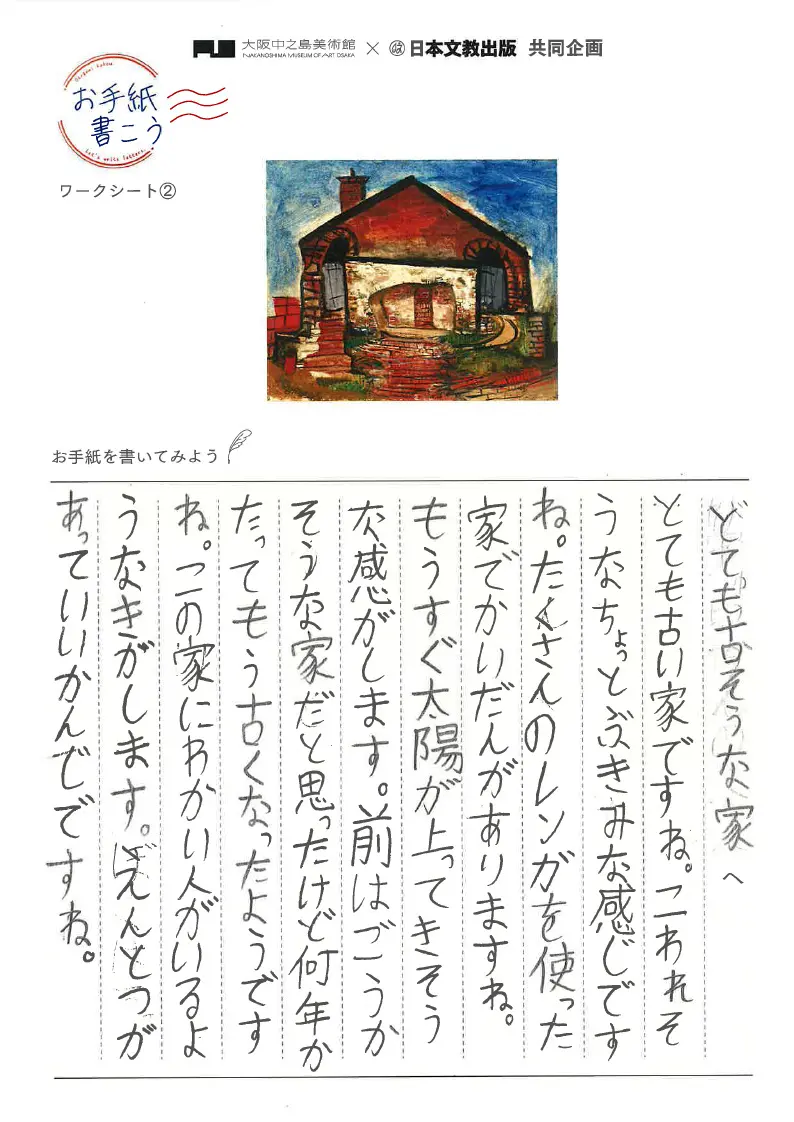 大阪中之島美術館
NAKANOSHIMA MUSEUM OF ART OSAKA
×
日本文教出版 共同企画
お手紙
書こう
Let's write letters.
ワークシート②
お手紙を書いてみよう
とても古そうな家へ
とても古い家ですね。こわれそ
うなちょっとぶきみな感じです
ね。たくさんのレンガを使った
家でかいだんがありますね。
もうすぐ太陽が上ってきそう
な感がします。前はごうか
そうな家だと思ったけど何年か
たってもう古くなったようです
ね。この家にわかい人がいるよ
うなきがします。えんとつが
あっていいかんじですね。